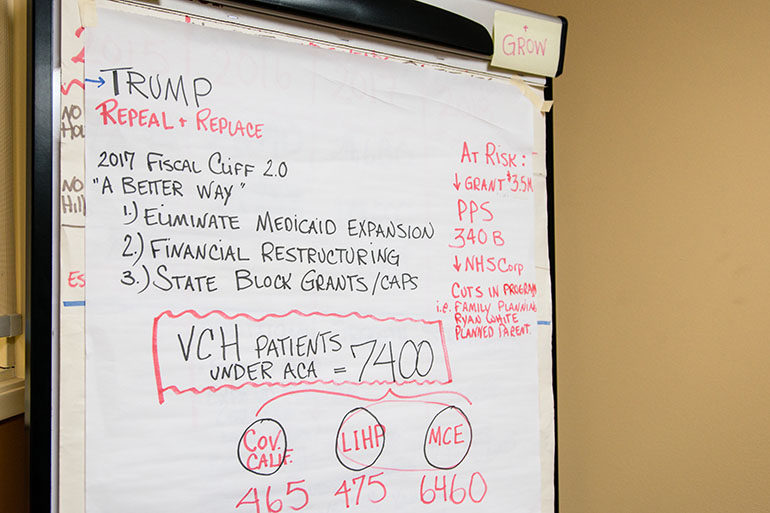 +
GROW
→TRUMP
REPEAL + REPLACE
2017 FISCAL CLIFF 2.0
"A BETTER WAY"
1.) ELIMINATE MEDICAID EXPANSION
2.) FINANCIAL RESTRUCTURING
3.) STATE BLOCK GRANTS/CAPS
AT RISK:
↓ GRANT $3.5M
PPS
340B
↓ NHSCorp
CUTS IN PROGRAM
i.e. FAMILY PLANNING
RYAN WHITE
PLANNED PARENT.
VCH PATIENTS
UNDER ACA = 7400
COV.
CALIF.
LIHP
MCE
465 475 6460
NO
NO